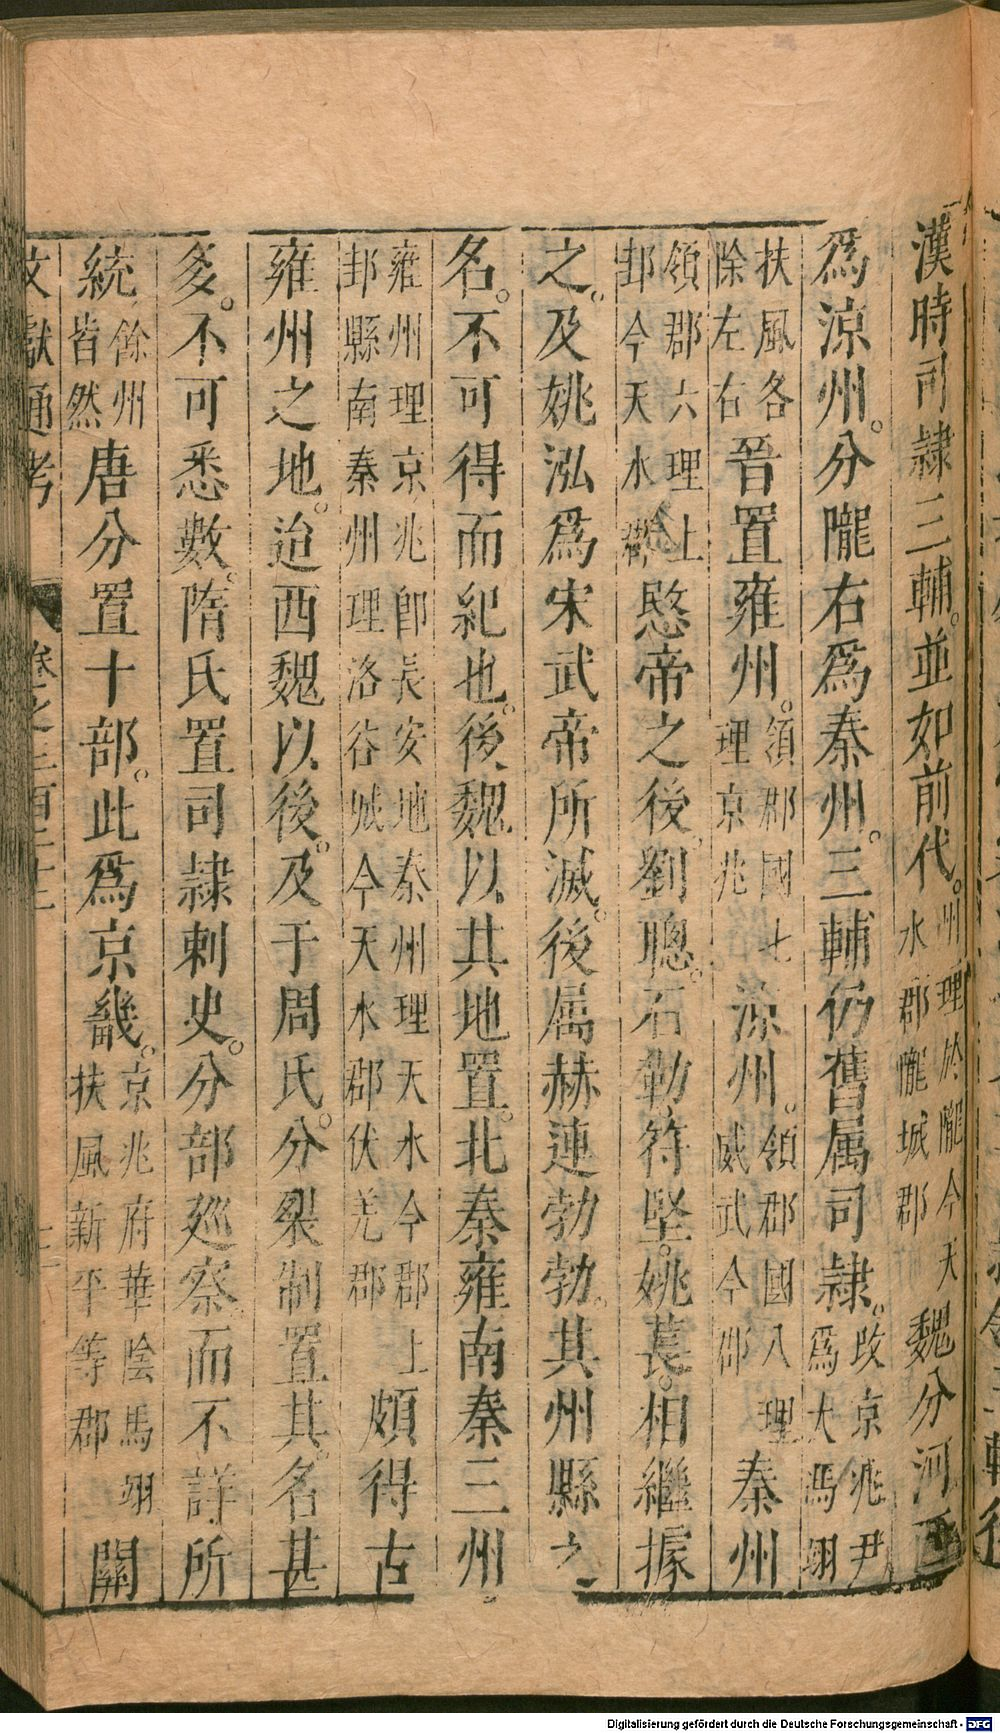 漢時司隸三輔。並如前代。州理於隴今天水郡隴城郡魏分河西
爲涼州。分隴右爲秦州。三輔仍舊属司隸。改京兆尹爲大馮翊
扶風各除左右晉置雍州。領郡國七理京兆涼州。領郡國八理武威今郡秦州
領郡六理上邽今天水愍帝之後。劉聰。石勒。符堅。姚萇。相繼據
之。及姚泓爲宋武帝所滅。後属赫連勃勃。其州縣之
名。不可得而紀也。後魏以其地置。北秦雍南秦三州。
雍州理京兆即長安地秦州理天水今郡上邽縣南秦州理洛谷城今天水郡伏羌郡頗得古
雍州之地。迨西魏以後。及于周氏。分裂制置其名。甚
多。不可悉數。隋氏置司隸刺史。分部廵察。而不詳所
統餘州皆然唐分置十部。此爲京畿。京兆府華陰馬翊扶風新平等郡關
文獻通考 卷之三百二十二